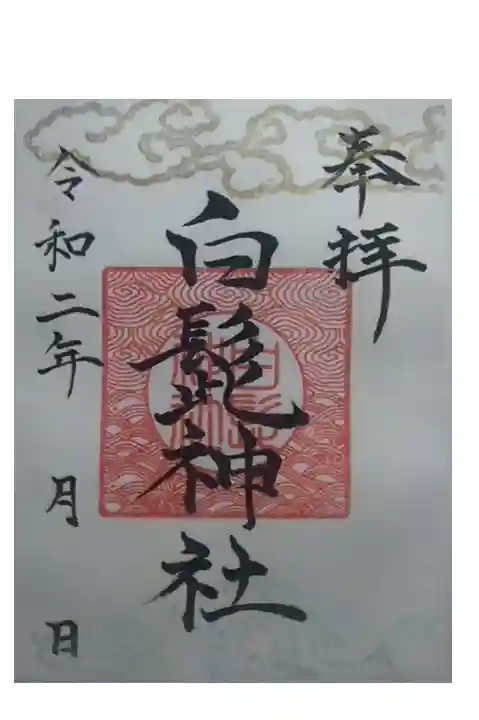 奉拝
白髭神社
令和二年 月 日